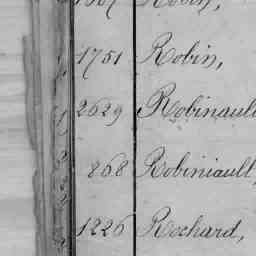 Robin,
1751 Robin,
2629 Robinault
868 Robiniault,
1226 Rochard,